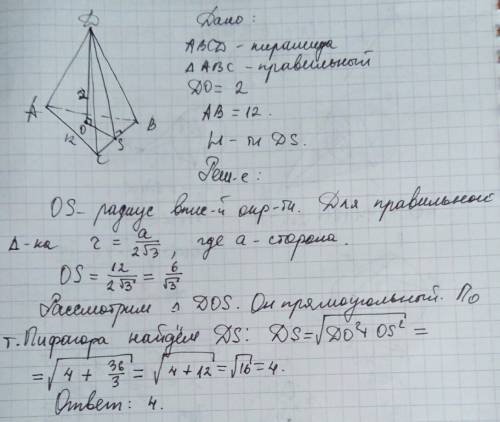 D
A
B
C
O
S
2
12
Дано:
ABCD - пирамида
ΔABC - правильный
DO = 2
AB = 12.
Н-ти DS.
Реш-е:
OS - радиус впис-й окр-ти. Для правильного
Δ-ка r = a/2√3, где a - сторона.
OS = 12/2√3 = 6/√3
Рассмотрим Δ DOS. Он прямоугольный. По
т. Пифагора найдём DS: DS = √DO² + OS² =
= √4 + 36/3 = √4 + 12 = √16 = 4.
Ответ: 4.